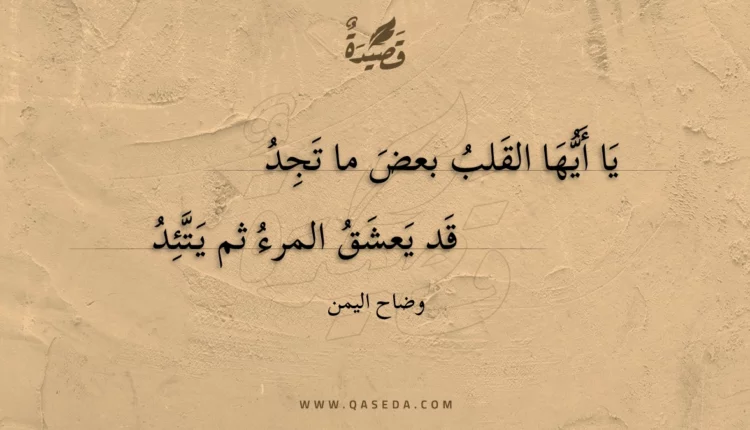 قَصِيدَةٌ
يَا أَيُّهَا القَلبُ بعضَ ما تَجِدُ
قَد يَعشَقُ المرءُ ثم يَتَّئِدُ
وضاح اليمن
WWW.QASEDA.COM